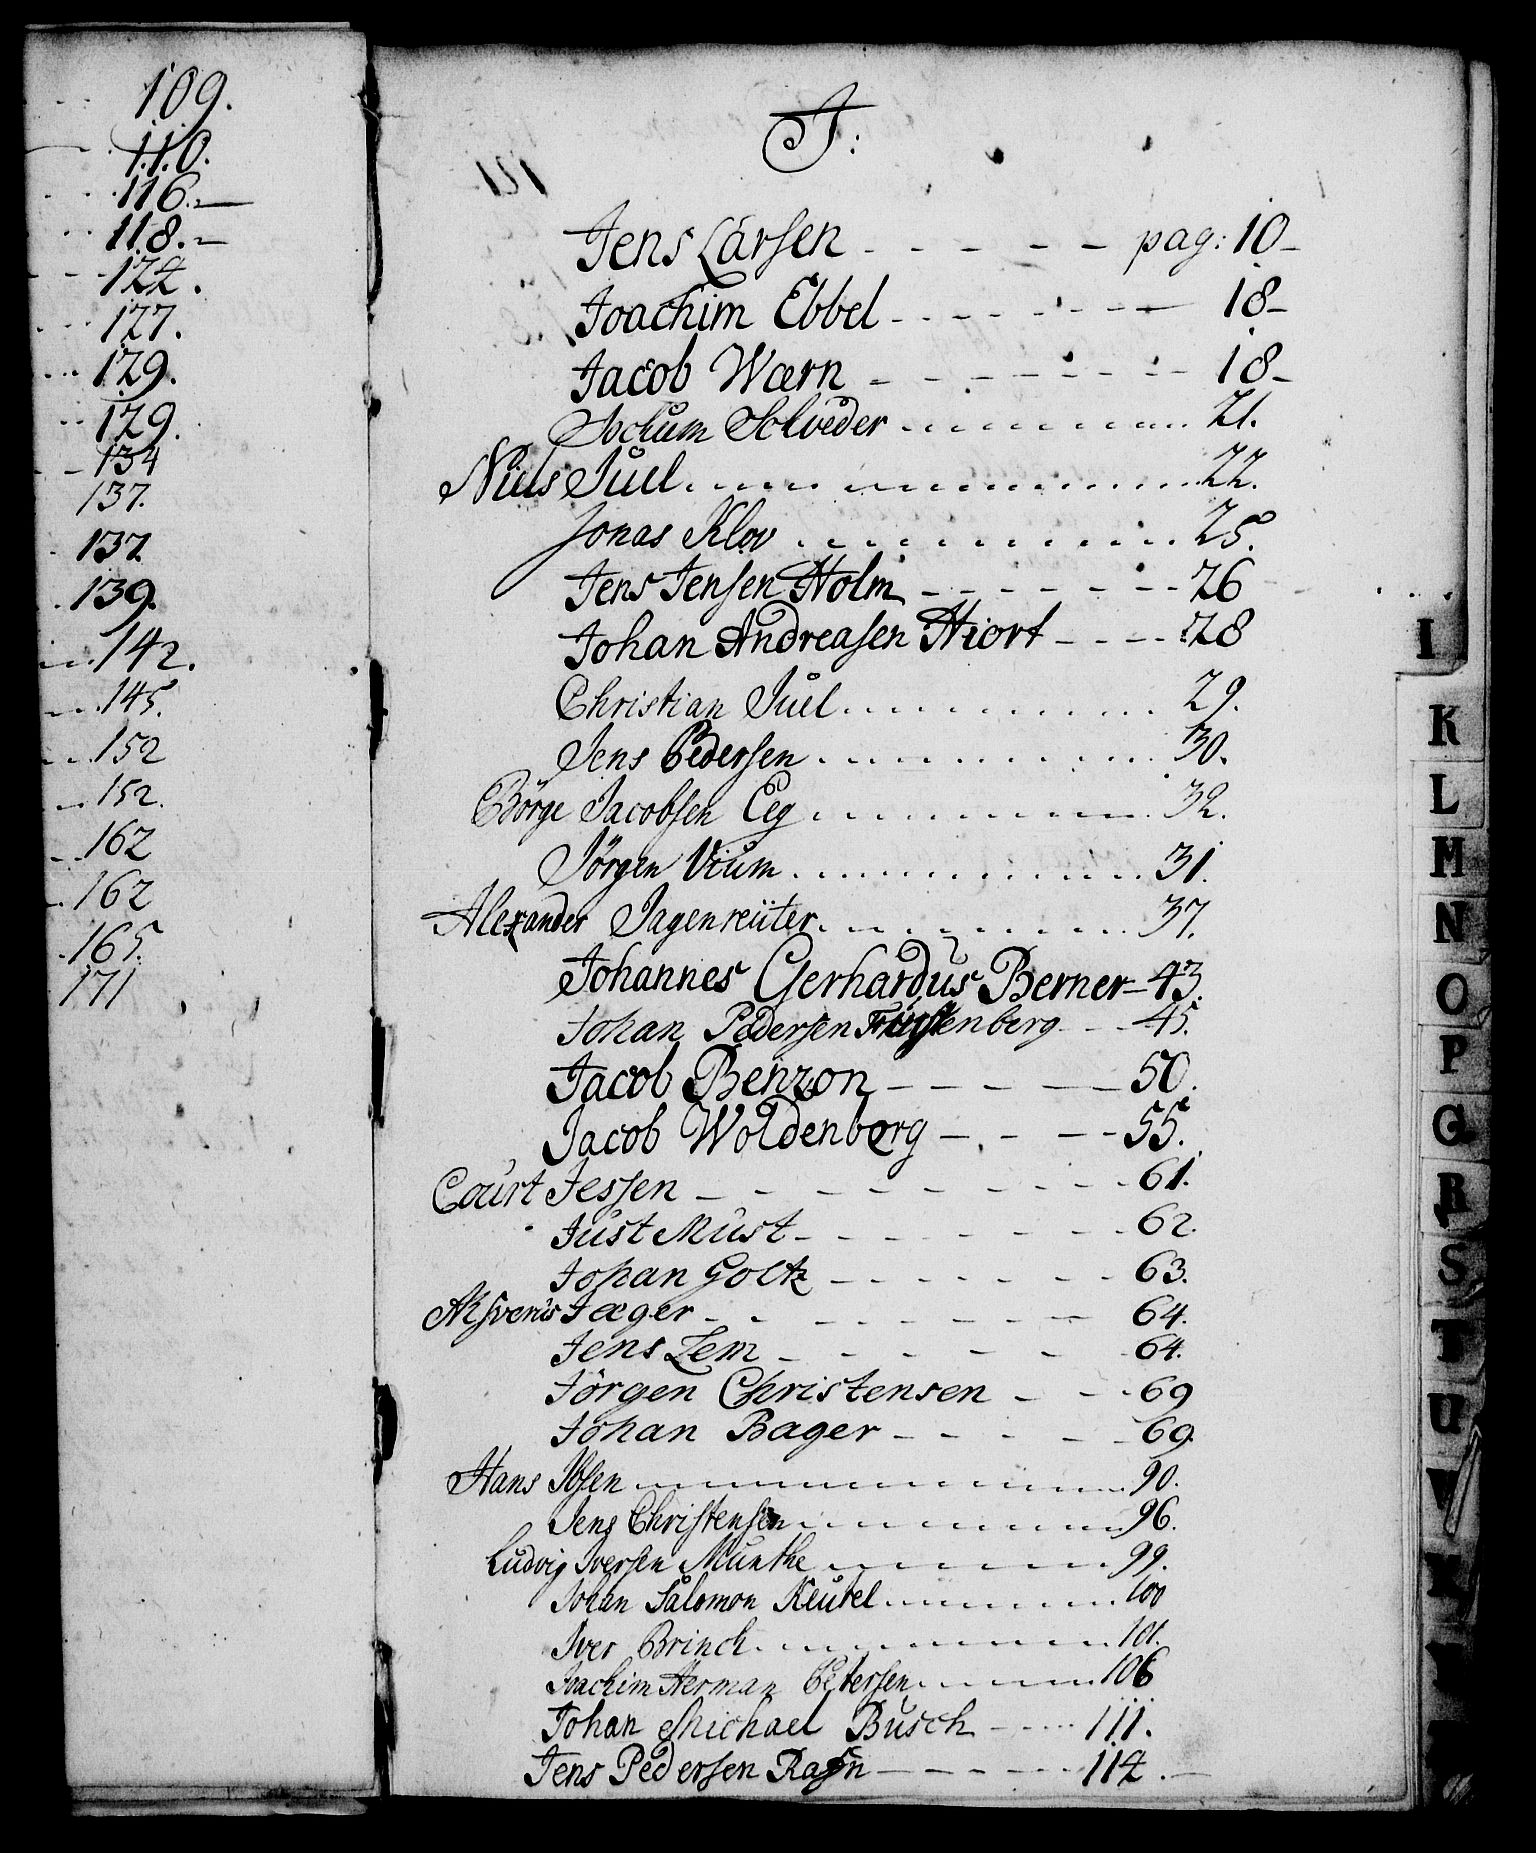 109.
110.
116.
118.
124.
127.
129.
129.
134
137.
137
139.
142.
145.
152
152.
162
162
165.
171
J:
121
Jens Larsen - - - - - pag: 10
Joachim Ebbel - - - - - - 18
Jacob Wærn - - - - - - 18
Jochum Solveder . . . . . . 21.
Niels Juel . . . . . . 22.
Jonas Klov . . . . . . 25.
Jens Jensen Holm - - - - - - 26
Johan Andreasen Hiort - - - - 28
Christian Juel . . . . . . 29.
Jens Pedersen . . . . . . 30.
Börge Jacobsen Eeg . . . . . . 32.
Jörgen Vium . . . . . . 31.
Alexander Jagenreüter . . . . . . 37.
Johannes Gerhardus Berner - 43.
Johan Pedersen - - - 45.
Jacob Benzon - - - - - 50.
Jacob Woldenborg - - - - 55.
Court Jessen - - - - - - 61.
Just Must - - - - - - 62.
Johan Goltz - - - - - - 63.
Ahsverus Jæger - - - - - - 64.
Jens Lem - - - - - - 64.
Jörgen Christensen - - - 69
Johan Bager - - - - - 69.
Hans Ibsen . . . . . . 90.
Jens Christensen . . . . . . 96.
Ludvig Iversen Munthe . . . . . . 99.
Johan Salomon Keutel . . . . . . 100
Iver Brinck . . . . . . 101.
Joachim Herman Petersen . . . . . . 106
Johan Michael Busch - - - - 111.
Jens Pedersen Rafn - - - - - 114.
I
K
L
M
N
O
P
Q
R
S
T
U
V